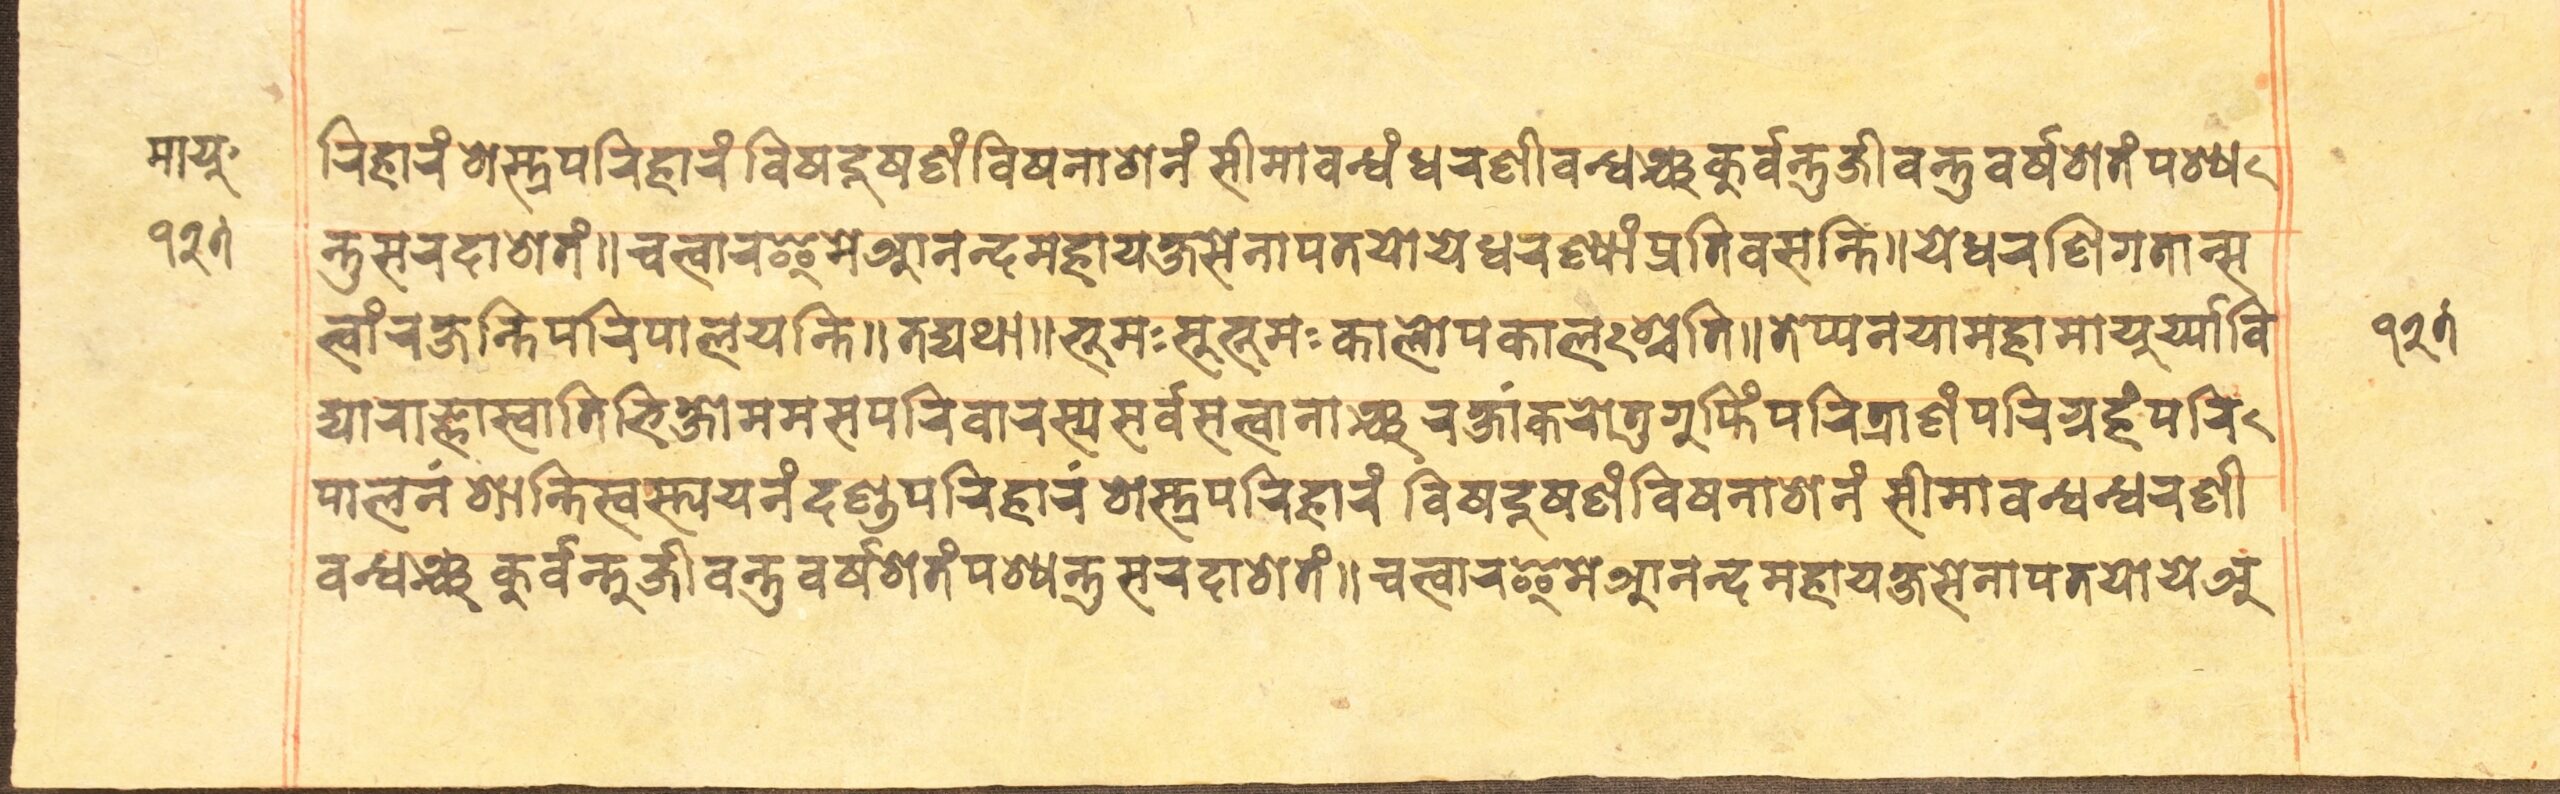 मायु॰
१२५
रिहारं शस्त्रपरिहारं विषदूषणं विषनाशनं सीमावन्धं धरणीवन्धञ्च कुर्वन्तु जीवन्तु वर्षशतं पश्य
न्तु सरदाशतं॥ चत्वारइमे आनन्द महायक्षसेनापतयो ये धरण्यां प्रतिवसन्ति॥ ये धरणिगतान्स
त्वां रक्षन्ति परिपालयन्ति॥ तद्यथा॥ भुमः सुभुमः कालोपकालश्चेति॥ तेप्यनया महामायुर्य्या वि
द्याराज्ञा स्वातिभिक्षो मम सपरिवारस्य सर्वसत्वानाञ्च रक्षां करोतु गुप्तिं परित्राणं परिग्रहं परि
पालनं शान्ति स्वस्त्ययनं दण्डपरिहारं शस्त्रपरिहारं विषदूषणं विषनाशनं सीमावन्धन्धरणी
वन्धञ्च कुर्वन्तु जीवन्तु वर्षशतं पश्यन्तु सरदाशतं॥ चत्वारइमे आनन्द महायक्षसेनापतयो ये अ
१२५